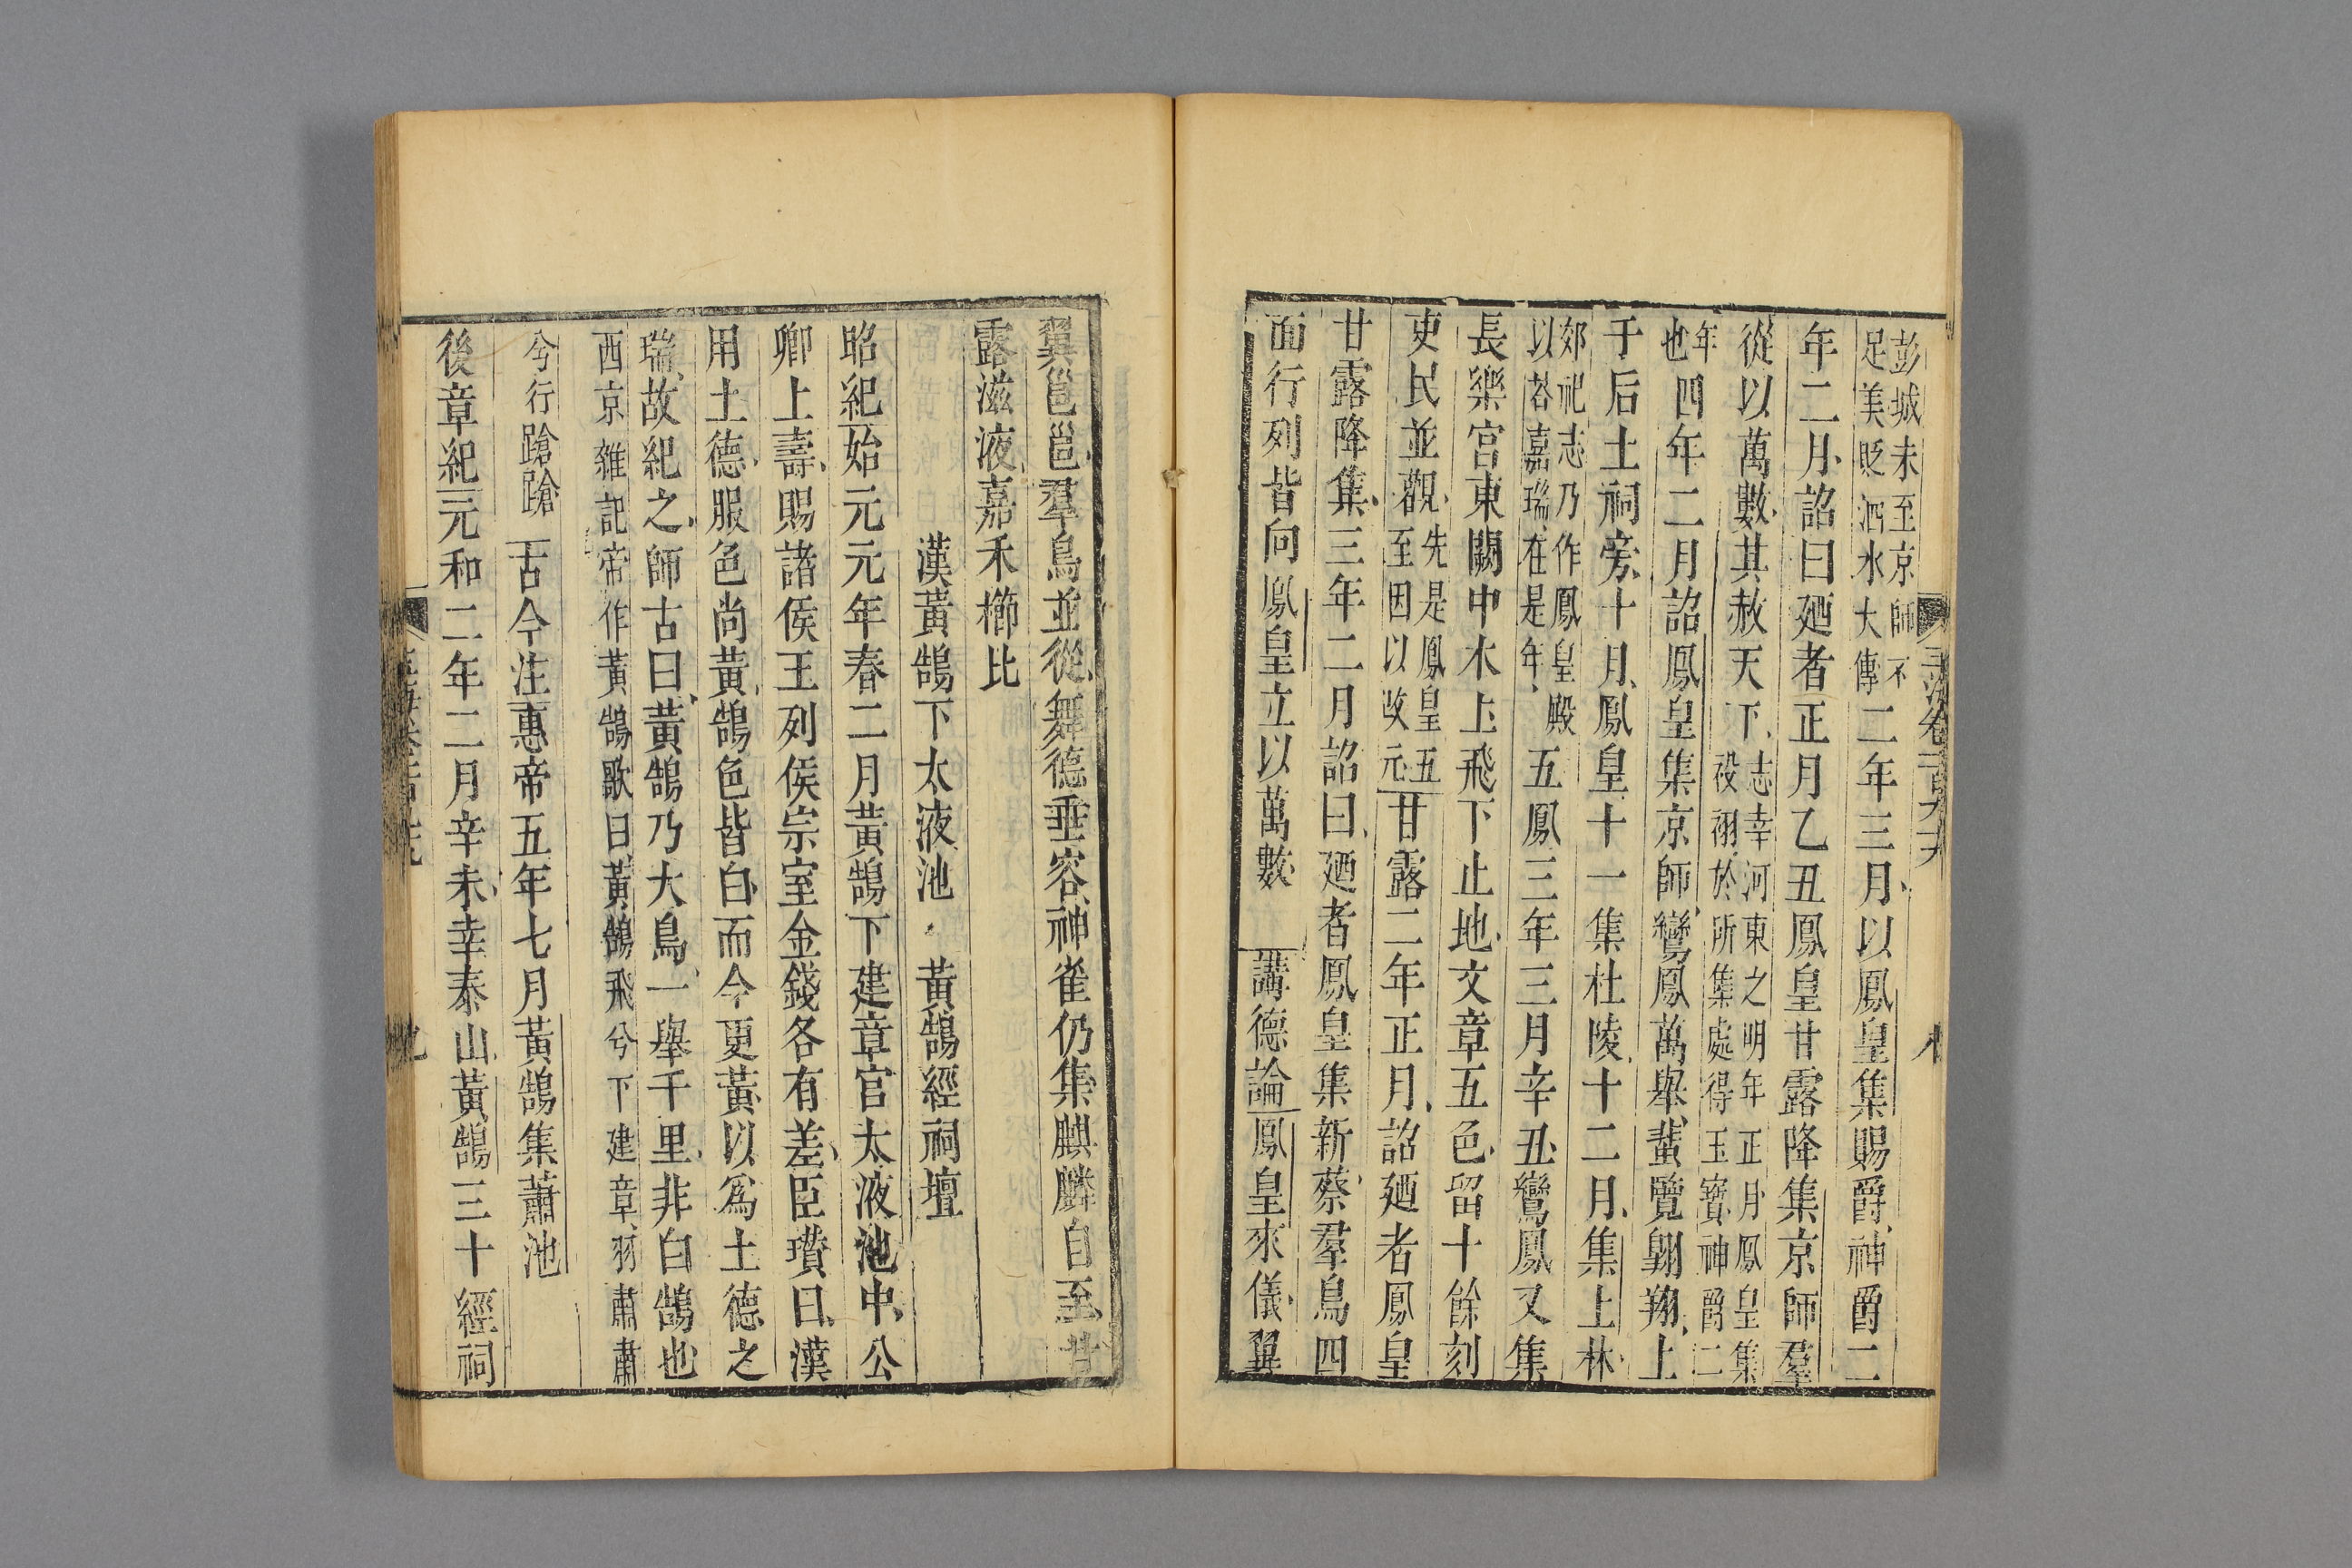 彭城未至京師不
足美貶泗水大傅二年三月以鳳皇集賜爵神爵二
年二月詔曰廼者正月乙丑鳳皇甘露降集京師羣
從以萬數其赦天下志幸河東之明年正月鳳皇集
祋祤於所集處得玉寶神爵二
年
也四年二月詔鳳皇集京師鸞鳳萬舉蜚覽翺翔上
于后土祠旁十月鳳皇十一集杜陵十二月集上林
郊祀志乃作鳳皇殿
以荅嘉瑞在是年五鳳三年三月辛丑鸞鳳又集
長樂宮東闕中木上飛下止地文章五色留十餘刻
吏民並觀先是鳳皇五
至因以改元甘露二年正月詔廼者鳳皇
甘露降集三年二月詔曰廼者鳳皇集新蔡羣鳥四
面行列皆向鳳皇立以萬數 講德論鳳皇來儀翼
翼邕邕羣鳥並從舞德垂容神雀仍集麒麟自至甘
露滋液嘉禾櫛比
漢黃鵠下太液池 黃鵠經祠壇
昭紀始元元年春二月黃鵠下建章宮太液池中公
卿上壽賜諸侯王列侯宗室金錢各有差臣瓚曰漢
用土德服色尚黃鵠色皆白而今更黃以爲土德之
瑞故紀之師古曰黃鵠乃大鳥一舉千里非白鵠也
西京雜記帝作黃鵠歌曰黃鵠飛兮下建章羽肅肅
兮行蹌蹌 古今注惠帝五年七月黃鵠集蕭池
後章紀元和二年二月辛未幸泰山黃鵠三十經祠